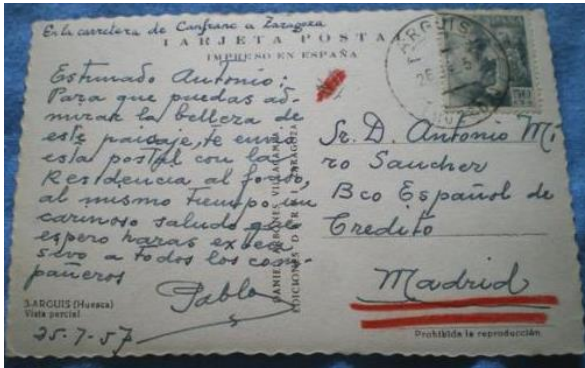 En la carretera de Canfranc a Zaragoza
TARJETA POSTAL
IMPRESO EN ESPAÑA
Estimado Antonio:
Para que puedas ad-
mirar la belleza de
este paisaje, te envio
esta postal con la
Residencia al fondo,
al mismo tiempo un
cariñoso saludo que
espero haras exten
sivo a todos los com
pañeros
Pablo
3-ARGUIS (Huesca)
Vista parcial
25-7-57
EDICIONES DARVI ZARAGOZA
ARGUIS
ESPAÑA
Sr. D. Antonio Mi
ro Saucher
Bco Español de
Credito
Madrid
Prohibida la reproducción